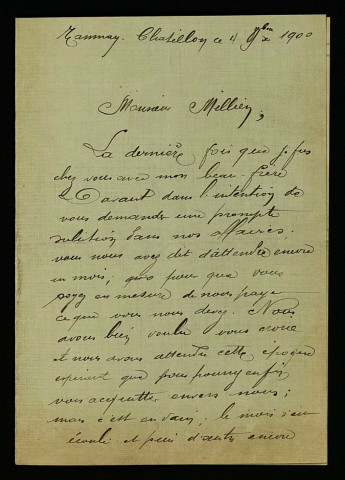 Tannay. Chatillon ce 4 9bre 1900
Monsieur Millien,
La dernière fois que je fus
chez vous avec mon beau-frère
Davant dans l'intention de
vous demander une prompte
solution dans nos affaires;
vous nous avez dit d'attendre encore
un mois; que pour que vous
soyez en mesure de nous payer
ce que vous nous devez. Nous
avons bien voulu vous croire
et nous avons attendu cette époque
espérant que vous pourriez enfin
vous acquitter envers nous;
mais c'est en vain; le mois s'est
écoulé et puis d'autres encore